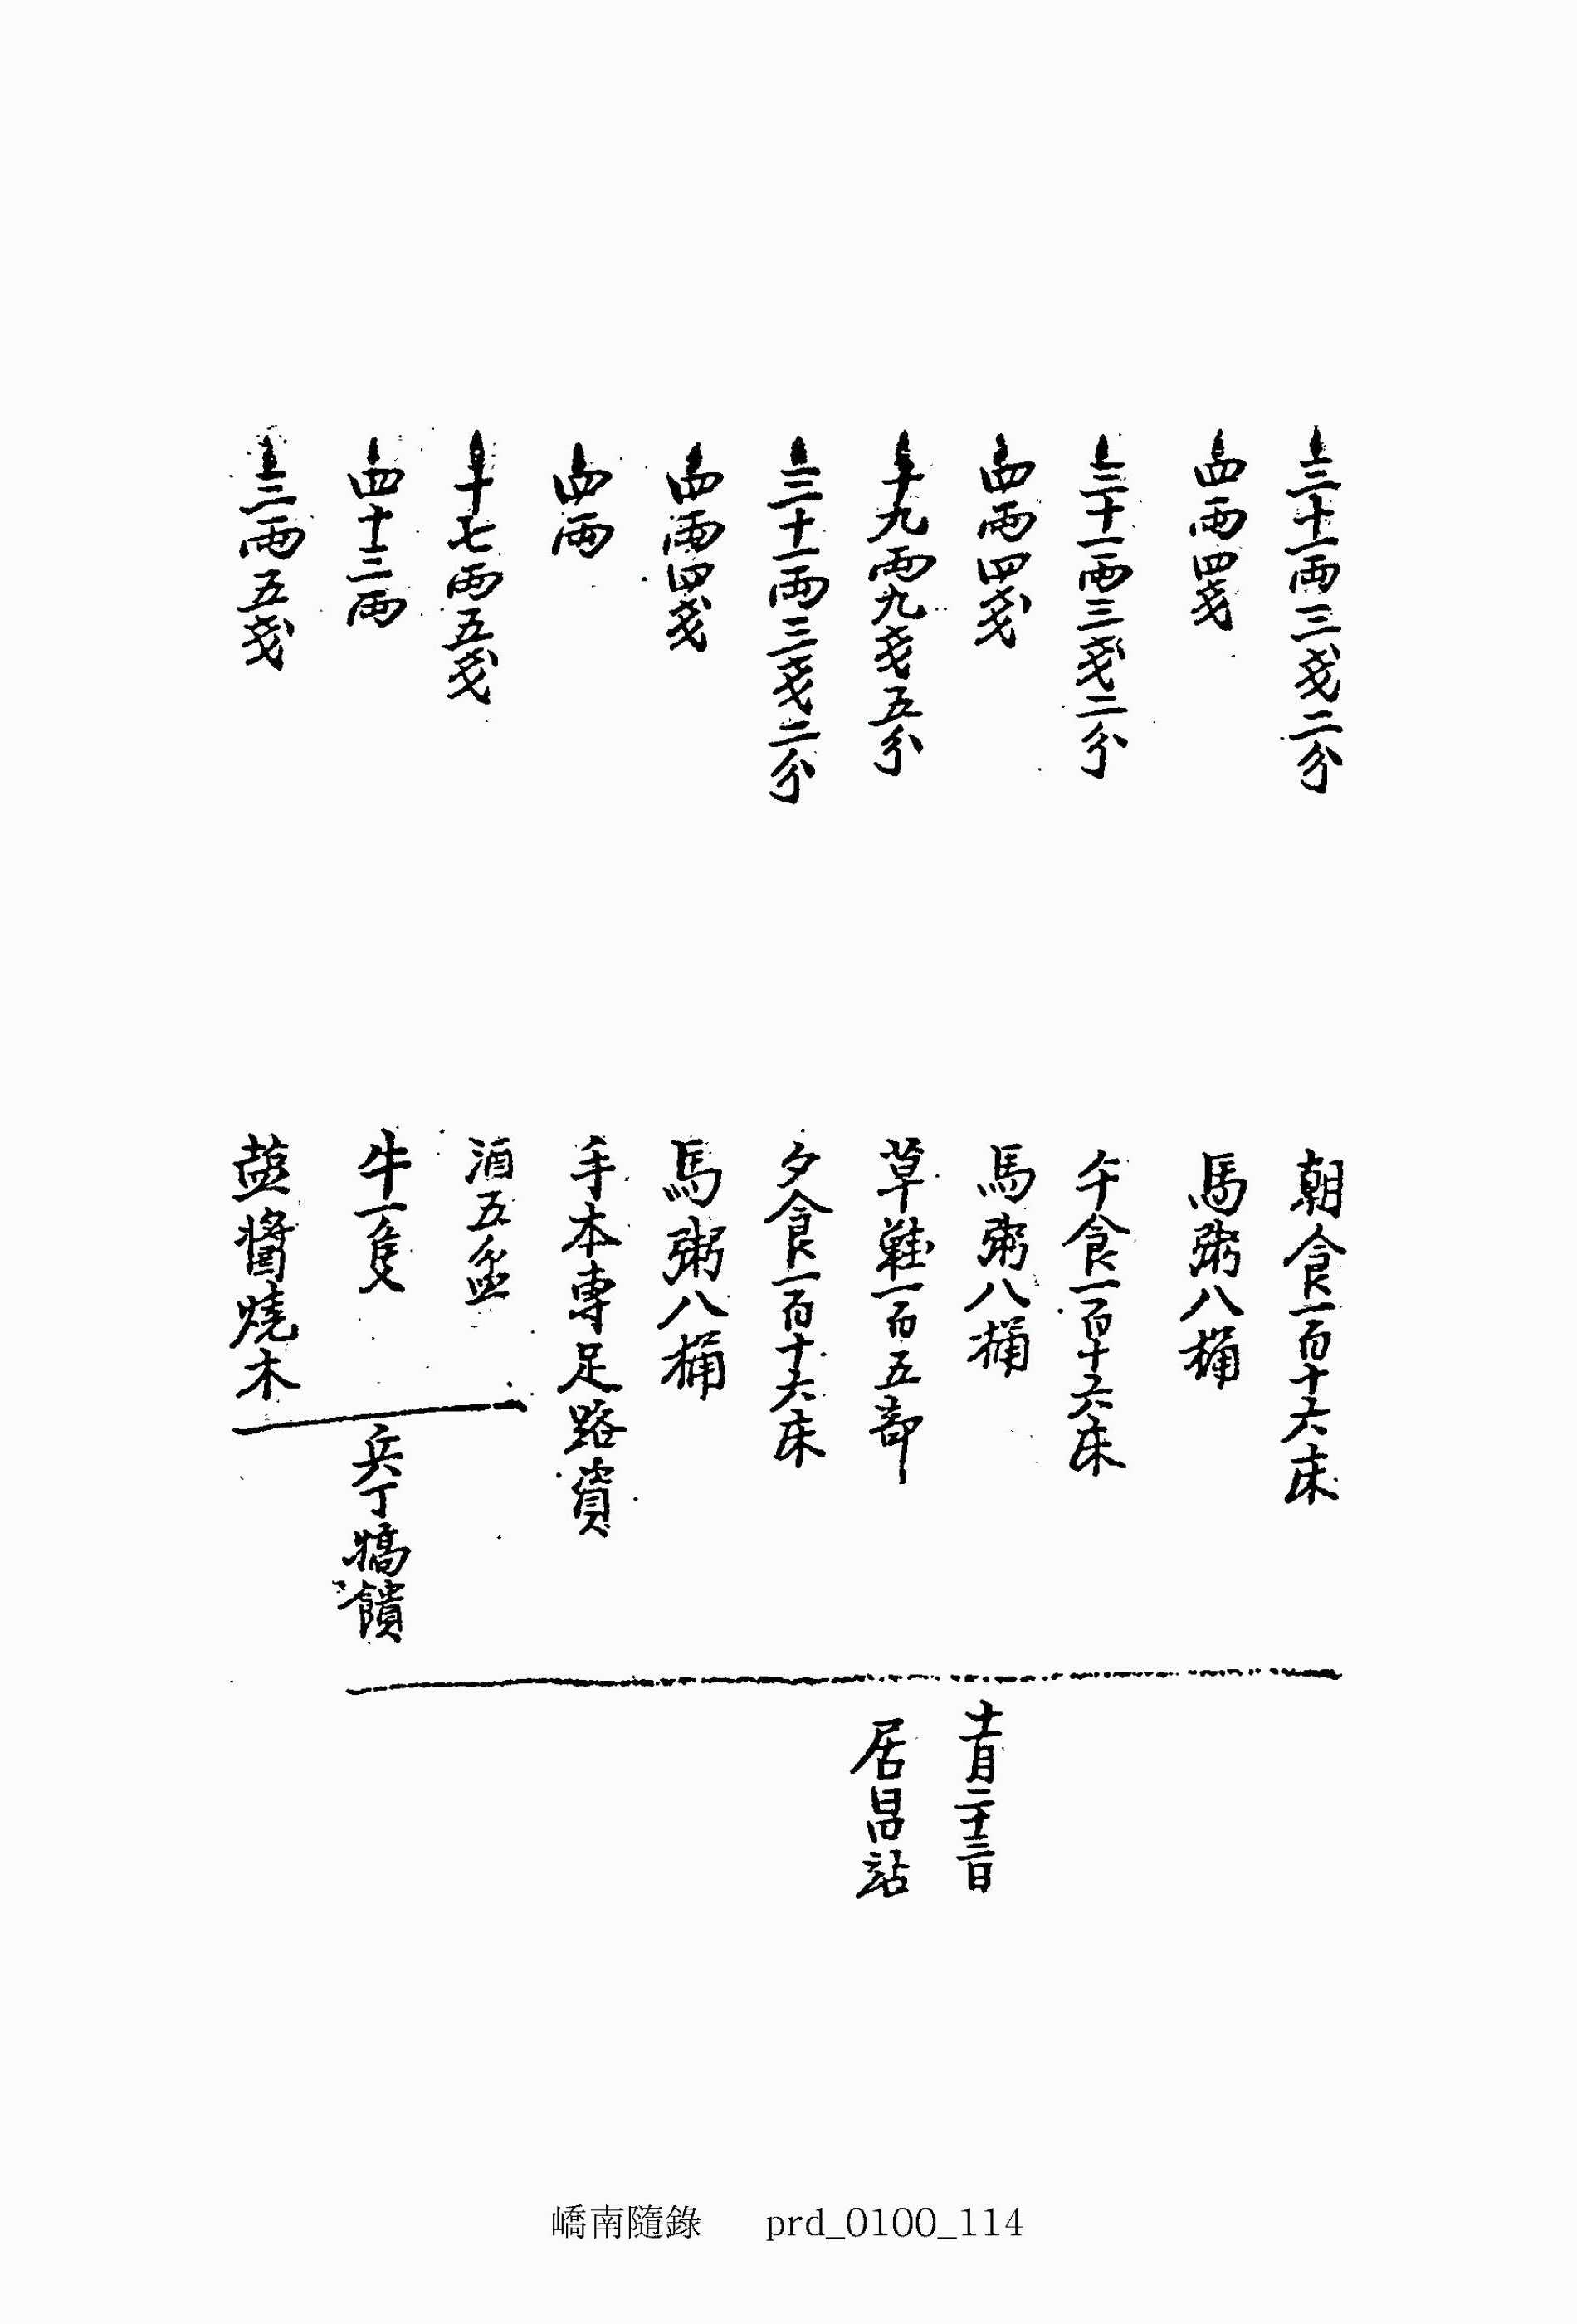 三十一兩三戔二分 朝食一百十六床
四兩四戔 馬粥八桶
三十一兩三戔二分 午食一百十六床
四兩四戔 馬粥八桶
十九兩九戔五分 草鞋一百五部
三十一兩三戔二分 夕食一百十六床
四兩四戔 馬粥八桶
四兩 手本專足路資
十七兩五戔 酒五盆
四十二兩 牛一隻
三兩五戔 盐醬燒木
兵丁犒饋
十一月二十三日
居昌站
嶠南隨錄 prd_0100_114